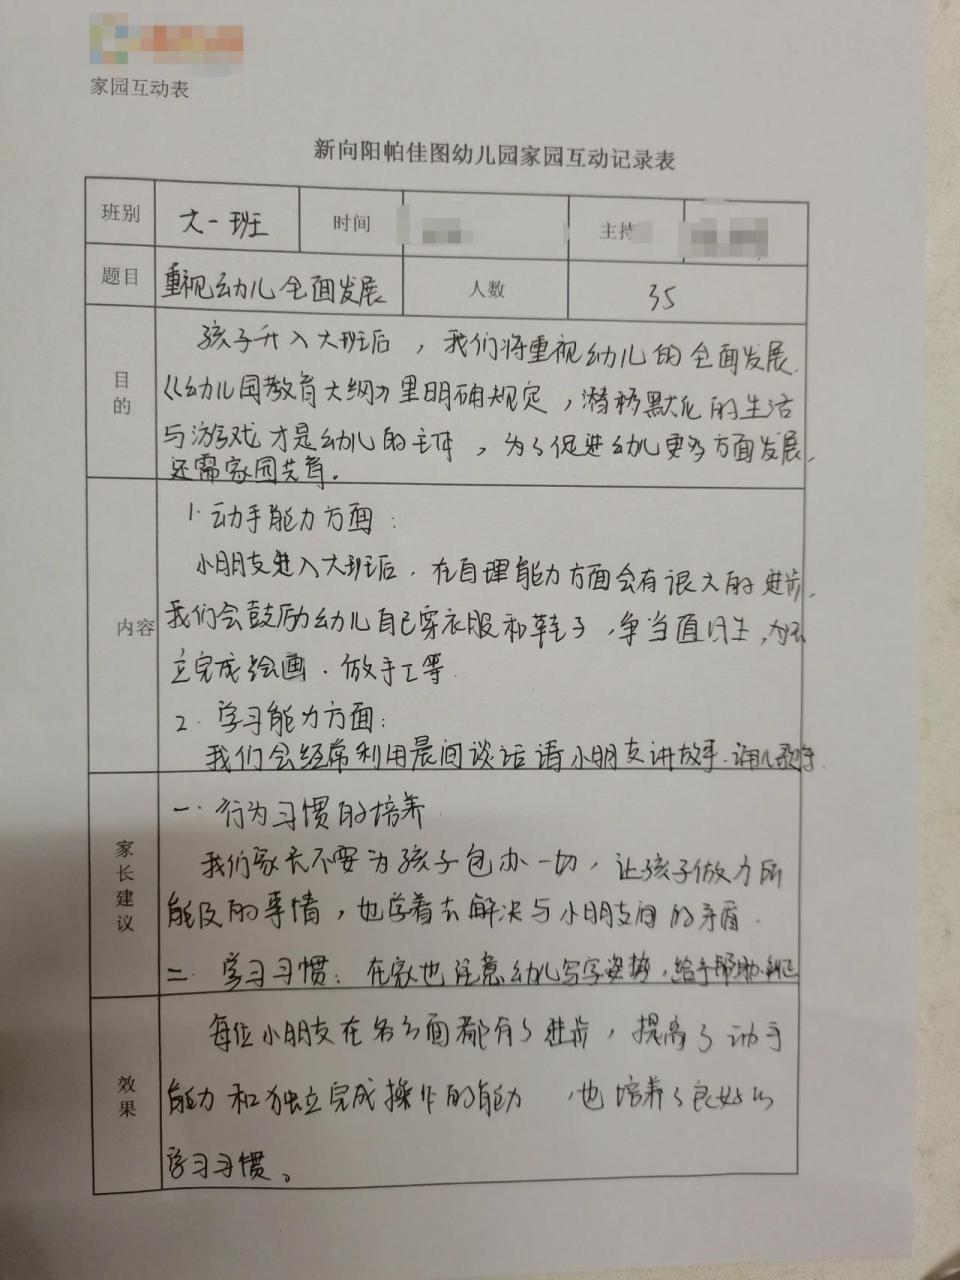 家园互动表
新向阳帕佳图幼儿园家园互动记录表
班别 大一班 时间 主持
题目 重视幼儿全面发展 人数 35
目的
孩子升入大班后，我们将重视幼儿的全面发展.
《幼儿园教育大纲》里明确规定，潜移默化的生活
与游戏才是幼儿的主体，为了促进幼儿更多方面发展，
还需家园共育.
内容
1. 动手能力方面：
小朋友进入大班后，在自理能力方面会有很大的进步.
我们会鼓励幼儿自己穿衣服和鞋子，争当值日生，
立完成绘画、做手工等.
2. 学习能力方面：
我们会经常利用晨间谈话请小朋友讲故事、诵儿歌等.
家长建议
一. 行为习惯的培养
我们家长不要为孩子包办一切，让孩子做力所
能及的事情，也学着去解决与小朋友间的矛盾.
二. 学习习惯：在家也注意幼儿写字姿势，给予帮助、纠正
效果
每位小朋友在各方面都有了进步，提高了动手
能力和独立完成操作的能力，也培养了良好的
学习习惯。